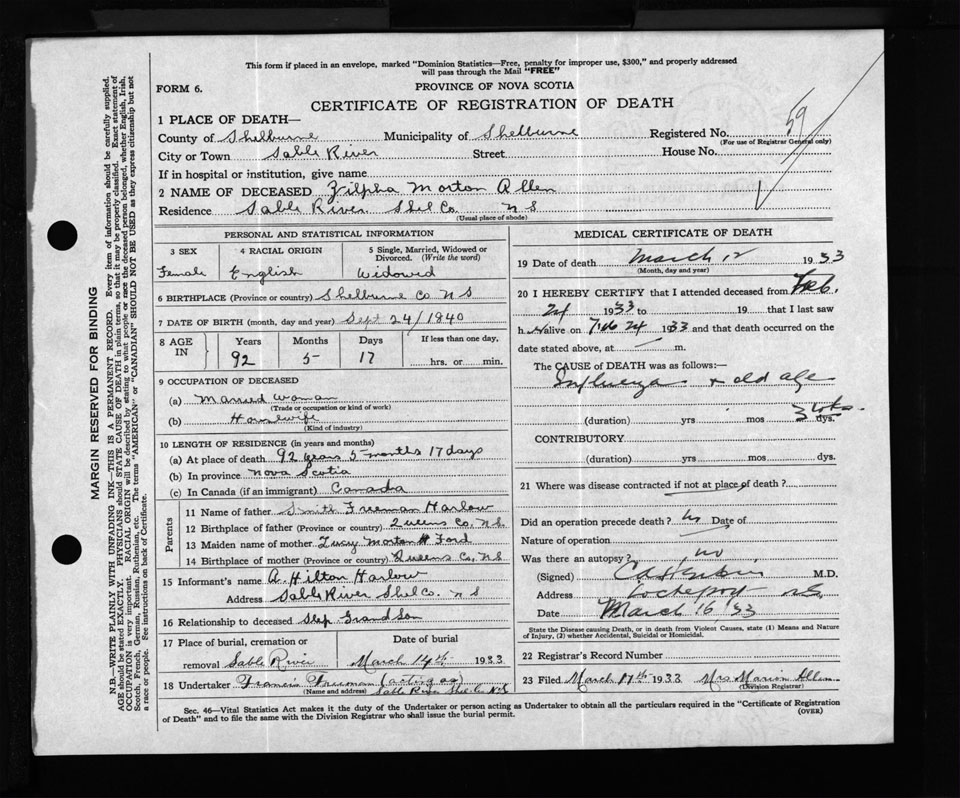 This form if placed in an envelope, marked "Dominion Statistics—Free, penalty for improper use, $300," and properly addressed
will pass through the Mail "FREE"
FORM 6.
PROVINCE OF NOVA SCOTIA
CERTIFICATE OF REGISTRATION OF DEATH
1 PLACE OF DEATH—
County of Shelburne Municipality of Shelburne Registered No. 59
(For use of Registrar General only)
City or Town Sable River Street House No.
If in hospital or institution, give name
2 NAME OF DECEASED Zilpha Morton Allen
Residence Sable River Shel Co. N S
(Usual place of abode)
MARGIN RESERVED FOR BINDING
N.B.—WRITE PLAINLY WITH UNFADING INK—THIS IS A PERMANENT RECORD. Every item of information should be carefully supplied.
AGE should be stated EXACTLY. PHYSICIANS should STATE CAUSE OF DEATH in plain terms so that it may be properly classified. Exact statement of
OCCUPATION is very important. RACIAL ORIGIN will be described by stating to what people or race the deceased person belonged, whether English, Irish,
Scotch, French, German, Russian, Ruthenian, etc. The terms "AMERICAN" or "CANADIAN" SHOULD NOT BE USED as they express citizenship but not
a race or people. See instructions on back of Certificate.
PERSONAL AND STATISTICAL INFORMATION
3 SEX 4 RACIAL ORIGIN 5 Single, Married, Widowed or
Divorced. (Write the word)
Female English Widowed
6 BIRTHPLACE (Province or country) Shelburne Co N S
7 DATE OF BIRTH (month, day and year) Sept 24/1840
8 AGE IN Years Months Days If less than one day,
92 5 17 hrs. or min.
9 OCCUPATION OF DECEASED
(a) Married woman
(Trade or occupation or kind of work)
(b) Housewife
(Kind of industry)
10 LENGTH OF RESIDENCE (in years and months)
(a) At place of death 92 years 5 months 17 days
(b) In province Nova Scotia
(c) In Canada (if an immigrant) Canada
Parents
11 Name of father Smith Freeman Harlow
12 Birthplace of father (Province or country) Queens Co, N S.
13 Maiden name of mother Lucy Morton Ford
14 Birthplace of mother (Province or country) Queens Co, N S
15 Informant's name A. Hilton Harlow
Address Sable River Shel Co. N S
16 Relationship to deceased Step Grandson
17 Place of burial, cremation or Date of burial
removal Sable River March 14th 1933
18 Undertaker Francis Freeman (acting as)
(Name and address) Sable River Shel. Co N S
MEDICAL CERTIFICATE OF DEATH
19 Date of death March 12 1933
(Month, day and year)
20 I HEREBY CERTIFY that I attended deceased from Feb.
24 1933 to 19 that I last saw
h er alive on Feb 24 1933 and that death occurred on the
date stated above, at m.
The CAUSE of DEATH was as follows:—
Influenza + old age
(duration) yrs mos 3 wks. dys.
CONTRIBUTORY
(duration) yrs mos dys.
21 Where was disease contracted if not at place of death?
Did an operation precede death? No Date of
Nature of operation
Was there an autopsy? no
(Signed) M.D.
Address Lockeport N.S.
Date March 16 '33
State the Disease causing Death, or in death from Violent Causes, state (1) Means and Nature
of Injury, (2) whether Accidental, Suicidal or Homicidal.
22 Registrar's Record Number
23 Filed March 17th 1933 Mrs Marion Allen
(Division Registrar)
Sec. 46—Vital Statistics Act makes it the duty of the Undertaker or person acting as Undertaker to obtain all the particulars required in the "Certificate of Registration
of Death" and to file the same with the Division Registrar who shall issue the burial permit.
(OVER)